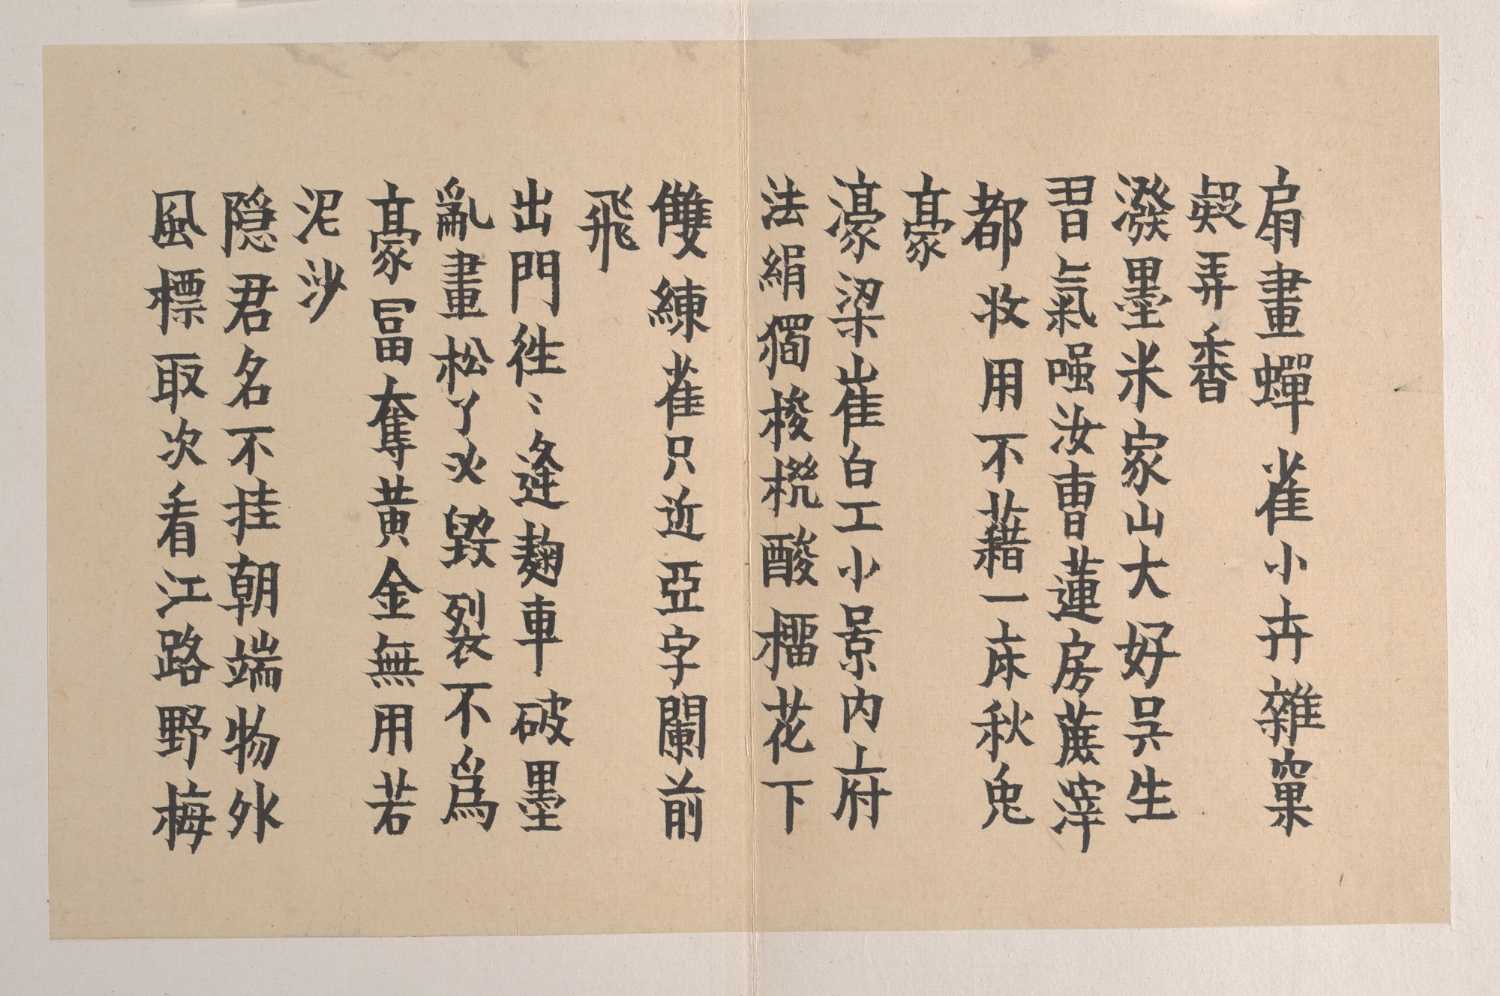 扇畫蟬雀小卉雜窠
弄香
潑墨米家山大好吳生
習氣嗤汝曹蓮房蔗滓
都收用不藉一床秋兔
豪
濠梁崔白工小景内府
法絹獨梭酸橊花下
雙練雀只近亞字闌前
飛
出門往〻逢麴車破墨
亂畫松丫叉毀裂不爲
豪富奪黃金無用若
泥沙
隱君名不挂朝端物外
風標取次看江路野梅